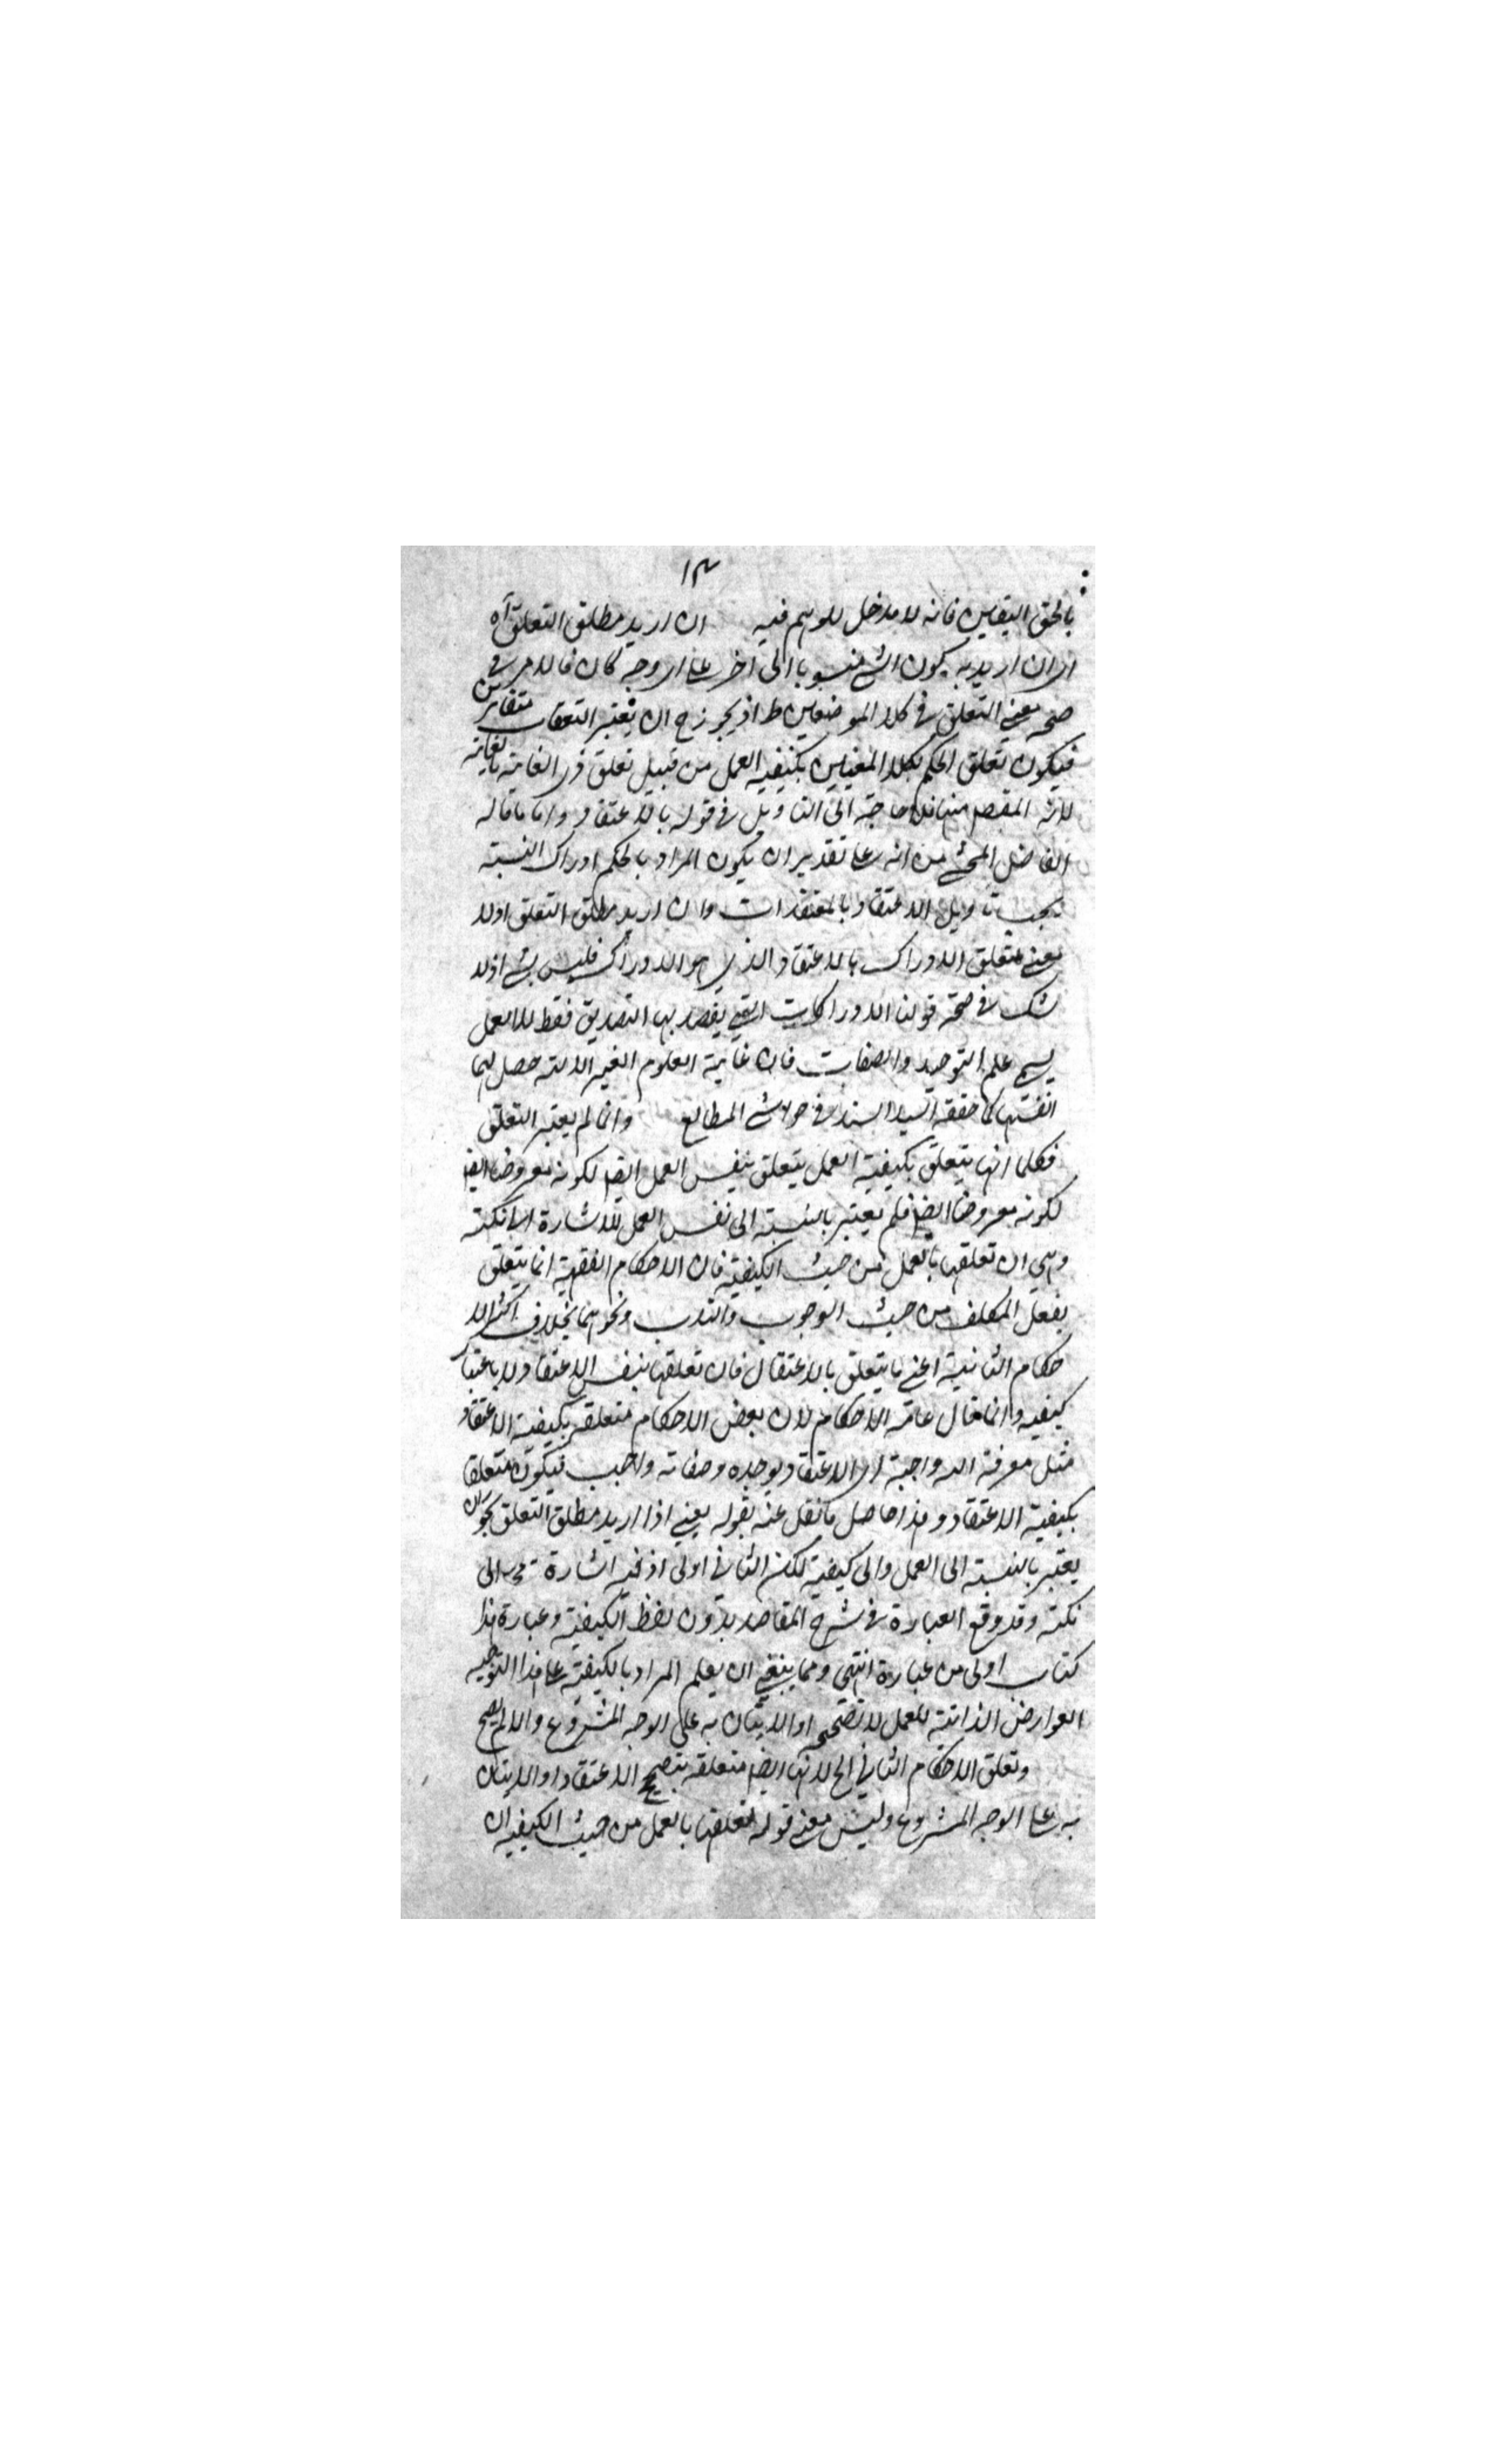 ١٣
بالحق اليقين فانه لا مدخل للوهم فيه ان اريد مطلق التعلق آه
اى ان اريد به كون الشئ منسوبا الى اخر على اى وجه كان فالامر فى
صحة معنى التعلق فى كلا الموضعين ط اذ يجوز ح ان يعتبر التعلقات متغايرين
فيكون تعلق الحكم بكلا المعنيين بكيفية العمل من قبيل تعلق ذى الغاية بالغاية
لانه المقصد منها فلا حاجة الى التاويل فى قوله بالاعتقاد واما ما قاله
الفاضل المحشى من انه على تقدير ان يكون المراد بالحكم ادراك النسبة
يجب تاويل الاعتقاد بالمعتقدات وان اريد مطلق التعلق اذ لا
معنى لتعلق الادراك بالاعتقاد الذى هو الادراك فليس بشئ اذ لا
شك فى صحة قولنا الادراكات التى يقصد بها التصديق فقط لا العمل
يسمى علم التوحيد والصفات فان غاية العلوم الغير الالية حصل لها
انفسها كما حققه السيد السند فى حواشى المطالع وانما لم يعتبر التعلق
فكما انها يتعلق بكيفية العمل يتعلق بنفس العمل ايضا لكونه معروضا ايضا
لكونه معروضا ايضا فلم يعتبر بالنسبة الى نفس العمل للاشارة الى نكتة
وهى ان تعلقها بالعمل من حيث الكيفية فان الاحكام الفقهية انما يتعلق
بفعل المكلف من حيث الوجوب والندب ونحوهما بخلاف اكثر الا
حكام الثانية اعنى ما يتعلق بالاعتقاد فان تعلقها بنفس الاعتقاد لا باعتبار
كيفيه وانما قال عامة الاحكام لان بعض الاحكام متعلقة بكيفية الاعتقاد
مثل معرفة الله واجبة اى الاعتقاد بوجوده وصفاته واجب فيكون متعلقا
بكيفية الاعتقاد وهذا حاصل ما نقل عنه بقوله يعنى اذا اريد مطلق التعلق يجوز ان
يعتبر بالنسبة الى العمل والى كيفية لكن الثانى اولى اذ فيه اشارة الى
نكتة وقد وقع العبارة فى شرح المقاصد بدون لفظ الكيفية وعبارة هذا
كتاب اولى من عبارة انتهى ومما ينبغى ان يعلم المراد بالكيفية على هذا التوجيه
العوارض الذاتية للعمل لا تصحيحه او الاتيان به على الوجه المشروع والا لم يصح
وتعلق الاحكام الثانى الخ لانها ايضا متعلقة بتصحيح الاعتقاد او الاتيان
به على الوجه المشروع وليس معنى قوله تعلقها بالعمل من حيث الكيفية ان